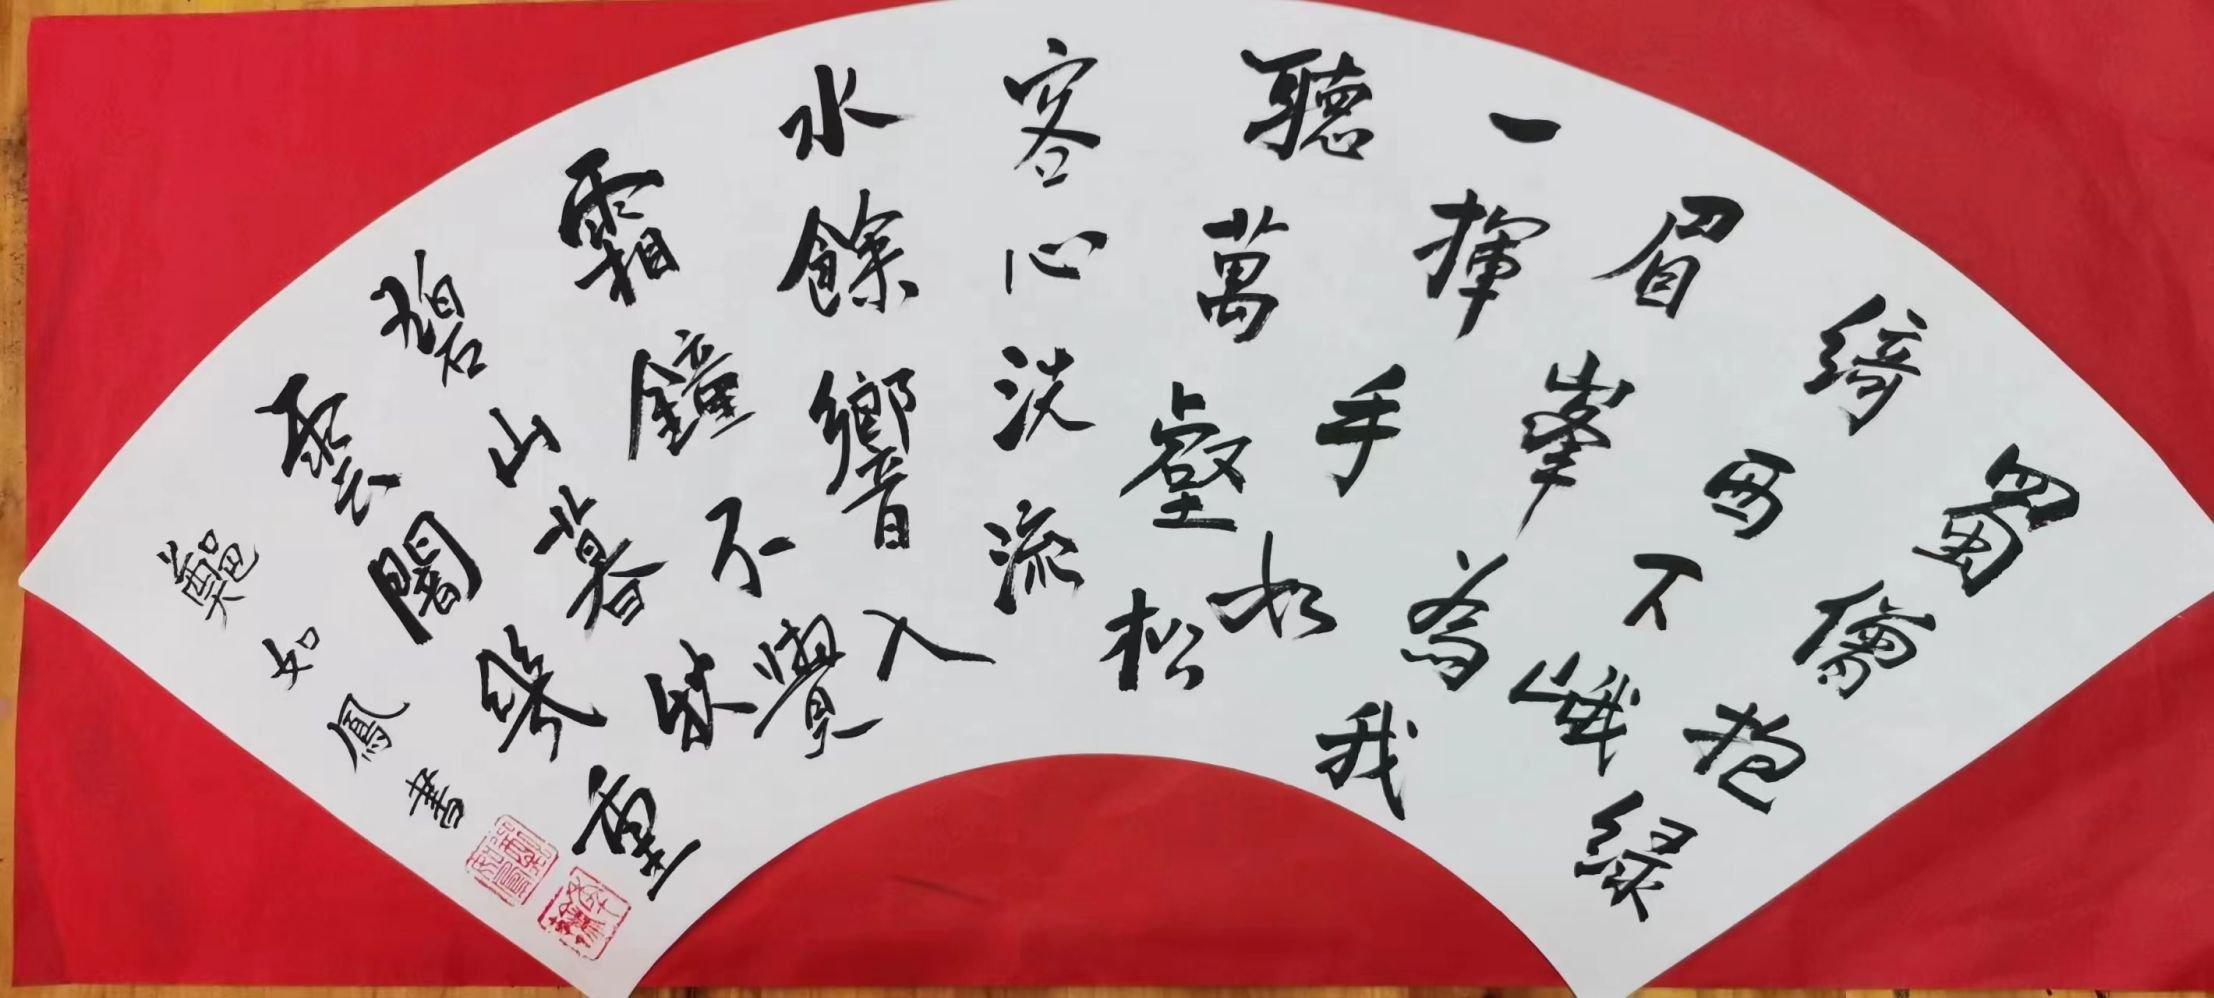 蜀僧抱緑
綺西下峨
眉峯為我
一揮手如
聽萬壑松
客心洗流
水餘響入
霜鐘不覺
碧山暮秋
雲闇幾重
鄭如鳳書